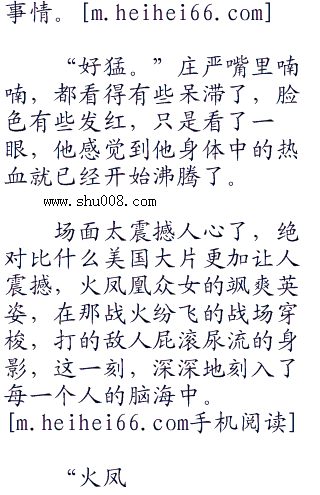 事情。[m.heihei66.com]
“好猛。”庄严嘴里喃
喃，都看得有些呆滞了，脸
色有些发红，只是看了一
眼，他感觉到他身体中的热
血就已经开始沸腾了。
www.shu008.com
场面太震撼人心了，绝
对比什么美国大片更加让人
震撼，火凤凰众女的飒爽英
姿，在那战火纷飞的战场穿
梭，打的敌人屁滚尿流的身
影，这一刻，深深地刻入了
每一个人的脑海中。
[m.heihei66.com手机阅读]
“火凤